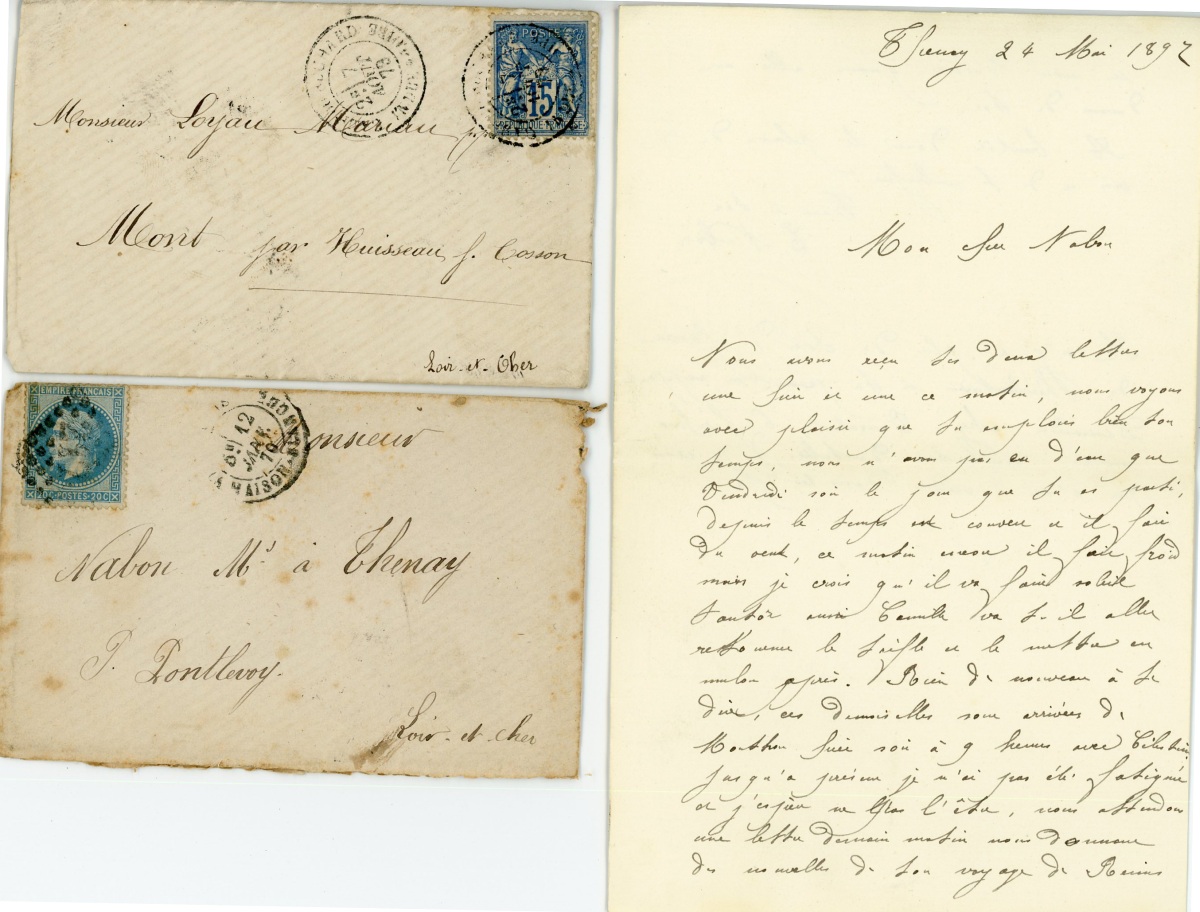 POSTES
15
RÉPUBLIQUE FRANÇAISE
AOUT
79
Monsieur Loyau Mareau
Mont par Huisseau s. Cosson
Loir-et-Cher
EMPIRE FRANÇAIS
20C-POSTES-20C
12
JANV.
70
Monsieur
Nabon Md à Thenay
P. Pontlevoy.
Loir-et-cher
Thenay 24 Mai 1897
Mon cher Nabon
Nous avons reçu tes deux lettres
une hier et une ce matin, nous voyons
avec plaisir que tu emploies bien ton
temps, nous n'avons pas eu d'eau que
Vendredi soir le jour que tu es parti,
depuis le temps est couvert et il fait
du vent, ce matin encore il fait froid
mais je crois qu'il va faire soleil
tantôt aussi Camille va t-il aller
retourner le trèfle et le mettre en
mulon après. Rien de nouveau à te
dire, ces demoiselles sont arrivées de
hier soir à 9 heures avec
jusqu'à présent je n'ai pas été fatiguée
et j'espère ne pas l'être, nous attendons
une lettre demain matin nous donnant
des nouvelles de ton voyage de Reims